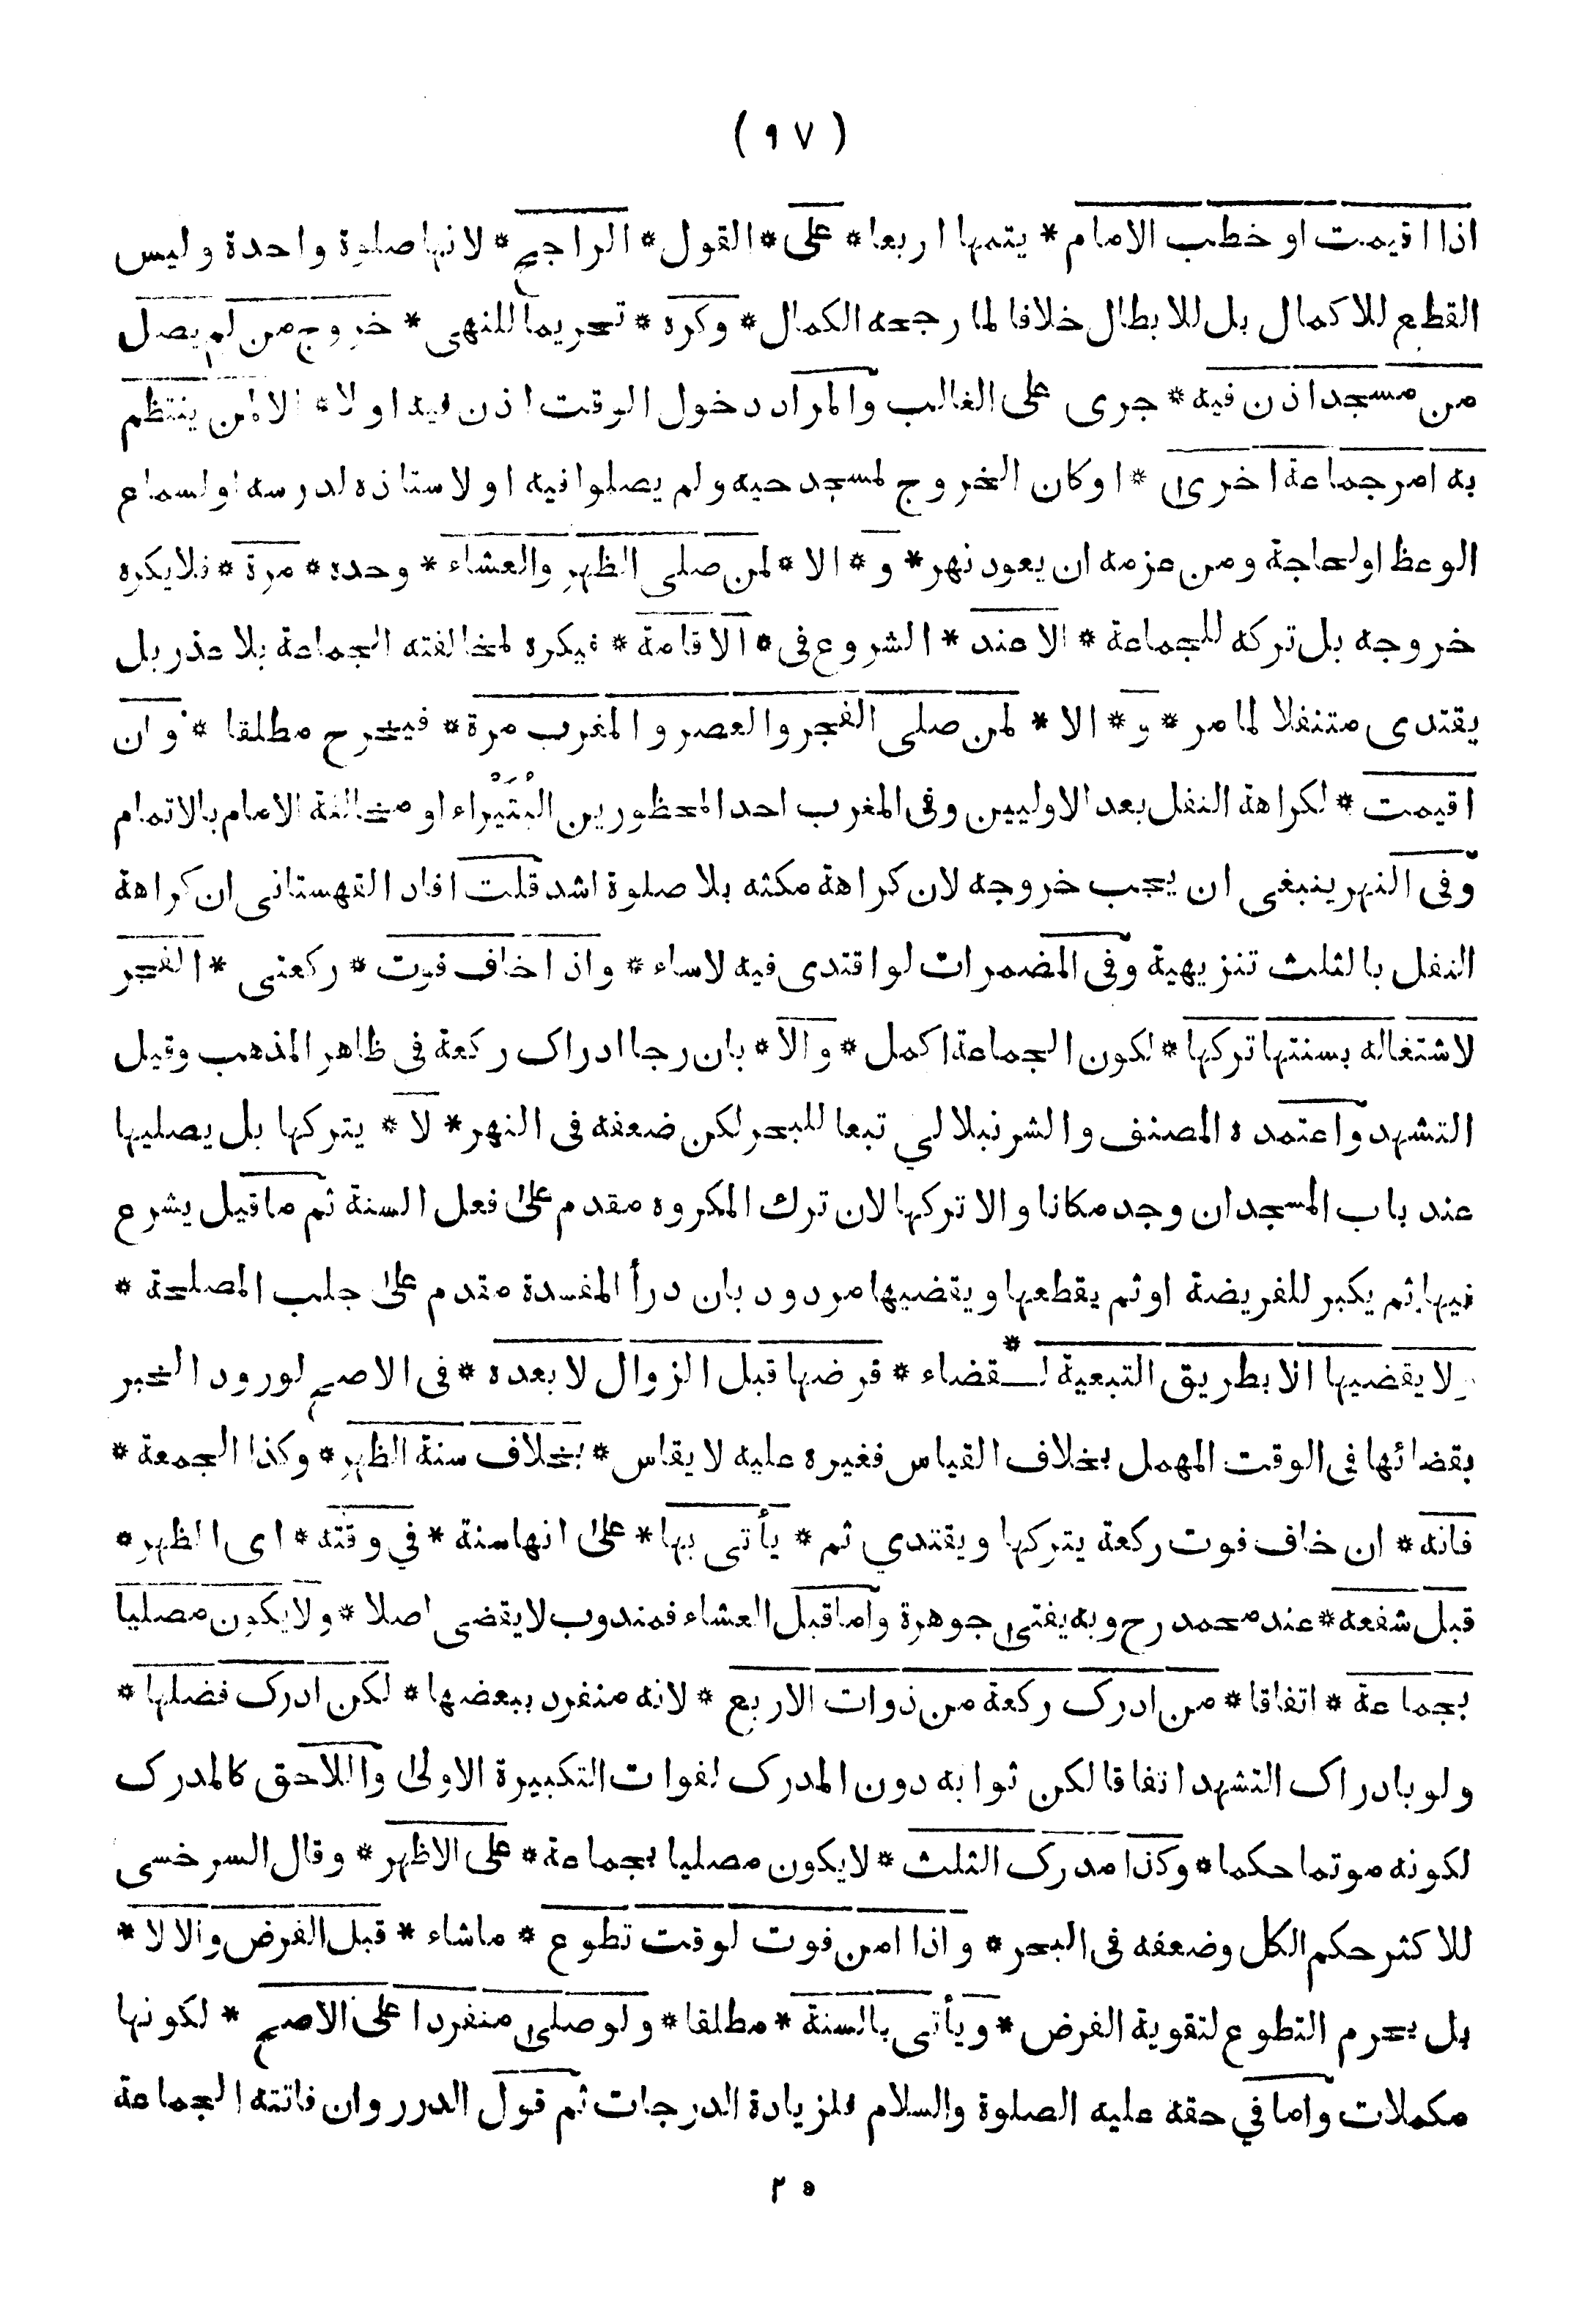 ( ٩٧ )
اذا اقيمت او خطب الامام * يتمها اربعا * على * القول * الراجح * لانها صلوة واحدة وليس
القطع للاكمال بل للابطال خلافا لما رجحه الكمال * وكره * تحريما للنهى * خروج من لم يصل
من مسجد اذن فيه * جرى على الغالب والمراد دخول الوقت اذن فيه او لا * الا لمن ينتظم
به امر جماعة اخرى * او كان الخروج لمسجد حيه ولم يصلوا فيه او لاستاذه لدرسه او لسماع
الوعظ او لحاجة ومن عزمه ان يعود نهر * و * الا * لمن صلى الظهر والعشاء * وحده * مرة * فلا يكره
خروجه بل تركه للجماعة * الا عند * الشروع فى * الاقامة * فيكره لمخالفته الجماعة بلا عذر بل
يقتدى متنفلا لما مر * و * الا * لمن صلى الفجر والعصر والمغرب مرة * فيخرج مطلقا * وان
اقيمت * لكراهة النفل بعد الاوليين وفى المغرب احد المحظورين البُتَيْراء او مخالفة الامام بالاتمام
وفى النهر ينبغى ان يجب خروجه لان كراهة مكثه بلا صلوة اشد قلت افاد القهستانى ان كراهة
النفل بالثلث تنزيهية وفى المضمرات لو اقتدى فيه لاساء * واذا خاف فوت * ركعتى * الفجر
لاشتغاله بسنتها تركها * لكون الجماعة اكمل * والا * بان رجا ادراك ركعة فى ظاهر المذهب وقيل
التشهد واعتمده المصنف والشرنبلالي تبعا للبحر لكن ضعفه فى النهر * لا * يتركها بل يصليها
عند باب المسجد ان وجد مكانا والا تركها لان ترك المكروه مقدم على فعل السنة ثم ما قيل يشرع
فيها ثم يكبر للفريضة او ثم يقطعها ويقضيها مردود بان درأ المفسدة مقدم على جلب المصلحة *
ولا يقضيها الا بطريق التبعية لـ * ـقضاء * فرضها قبل الزوال لا بعده * فى الاصح لورود الخبر
بقضائها فى الوقت المهمل بخلاف القياس فغيره عليه لا يقاس * بخلاف سنة الظهر * وكذا الجمعة *
فانه * ان خاف فوت ركعة يتركها ويقتدي ثم * يأتى بها * على انها سنة * في وقته * اى الظهر *
قبل شفعه * عند محمد رح وبه يفتى جوهرة واما قبل العشاء فمندوب لا يقضى اصلا * ولا يكون مصليا
بجماعة * اتفاقا * من ادرك ركعة من ذوات الاربع * لانه منفرد ببعضها * لكن ادرك فضلها *
ولو بادراك التشهد اتفاقا لكن ثوابه دون المدرك لفوات التكبيرة الاولى واللاحق كالمدرك
لكونه موتما حكما * وكذا مدرك الثلث * لا يكون مصليا بجماعة * على الاظهر * وقال السرخسى
للاكثر حكم الكل وضعفه فى البحر * واذا امن فوت لوقت تطوع * ماشاء * قبل الفرض والا لا *
بل يحرم التطوع لتقوية الفرض * ويأتى بالسنة * مطلقا * ولو صلى منفردا على الاصح * لكونها
مكملات واما في حقه عليه الصلوة والسلام فلزيادة الدرجات ثم قول الدرر وان فاتته الجماعة
٢٥